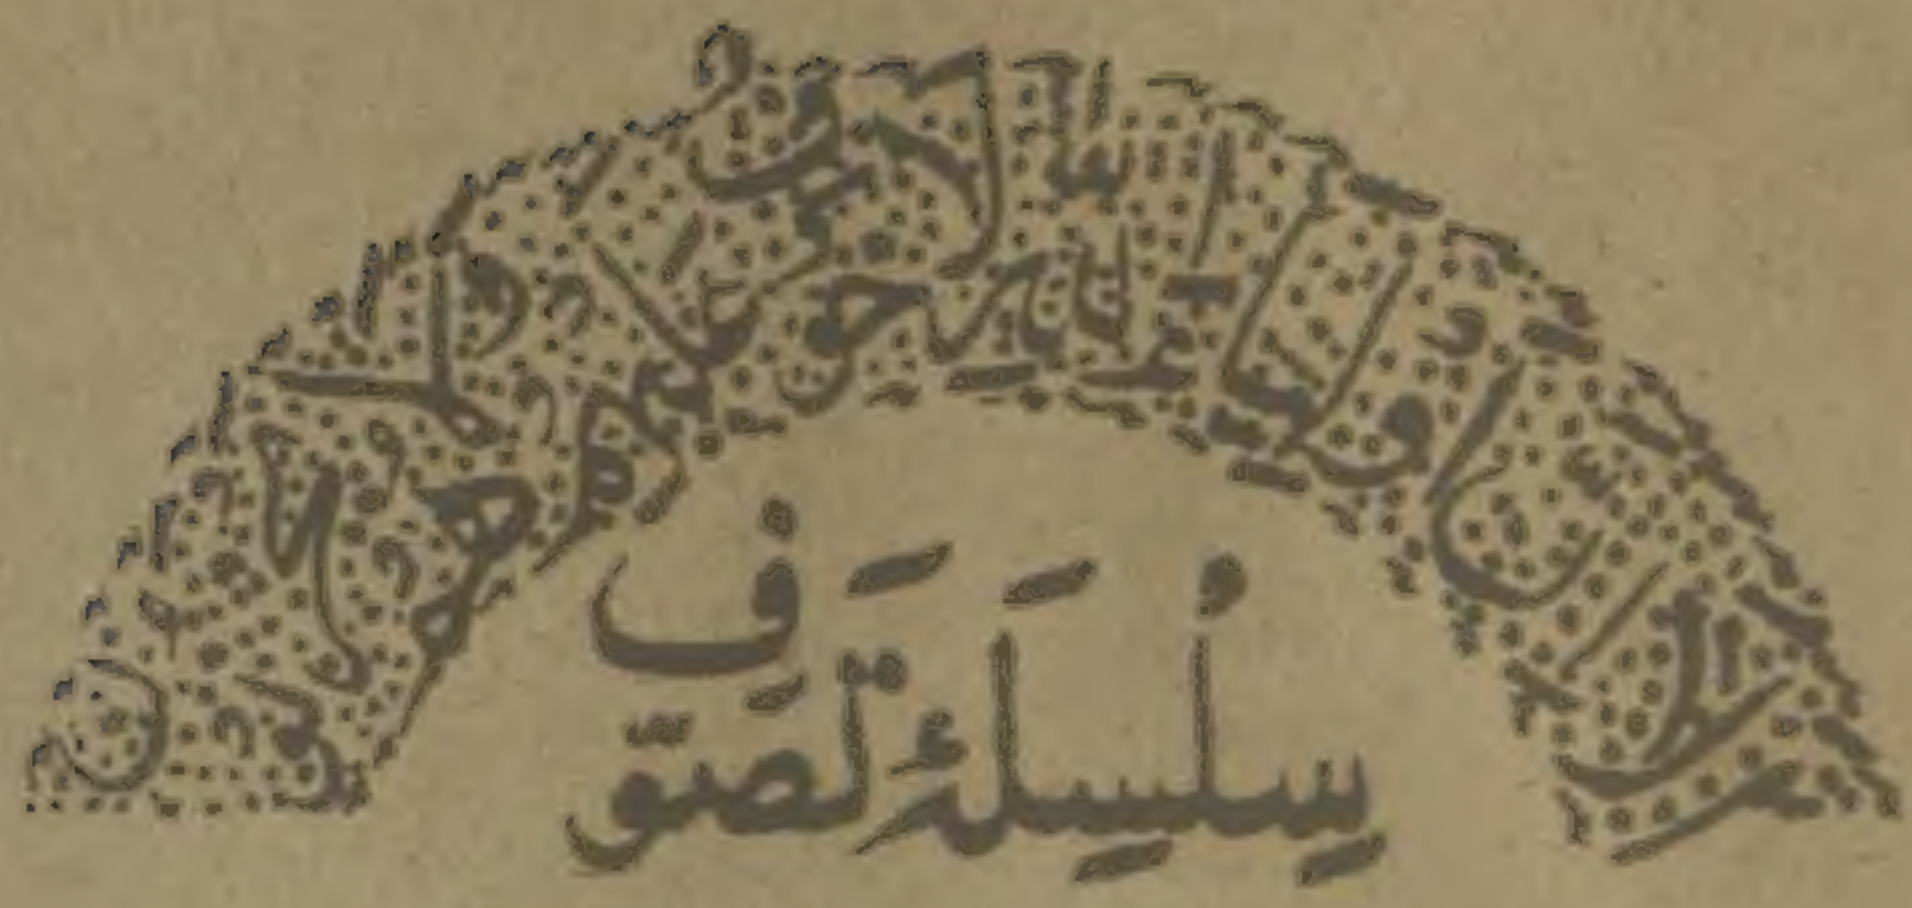 الا ان اولياء الله لا خوف عليهم ولا هم يحزنون
سِلْسِلَۂ تَصَوّف